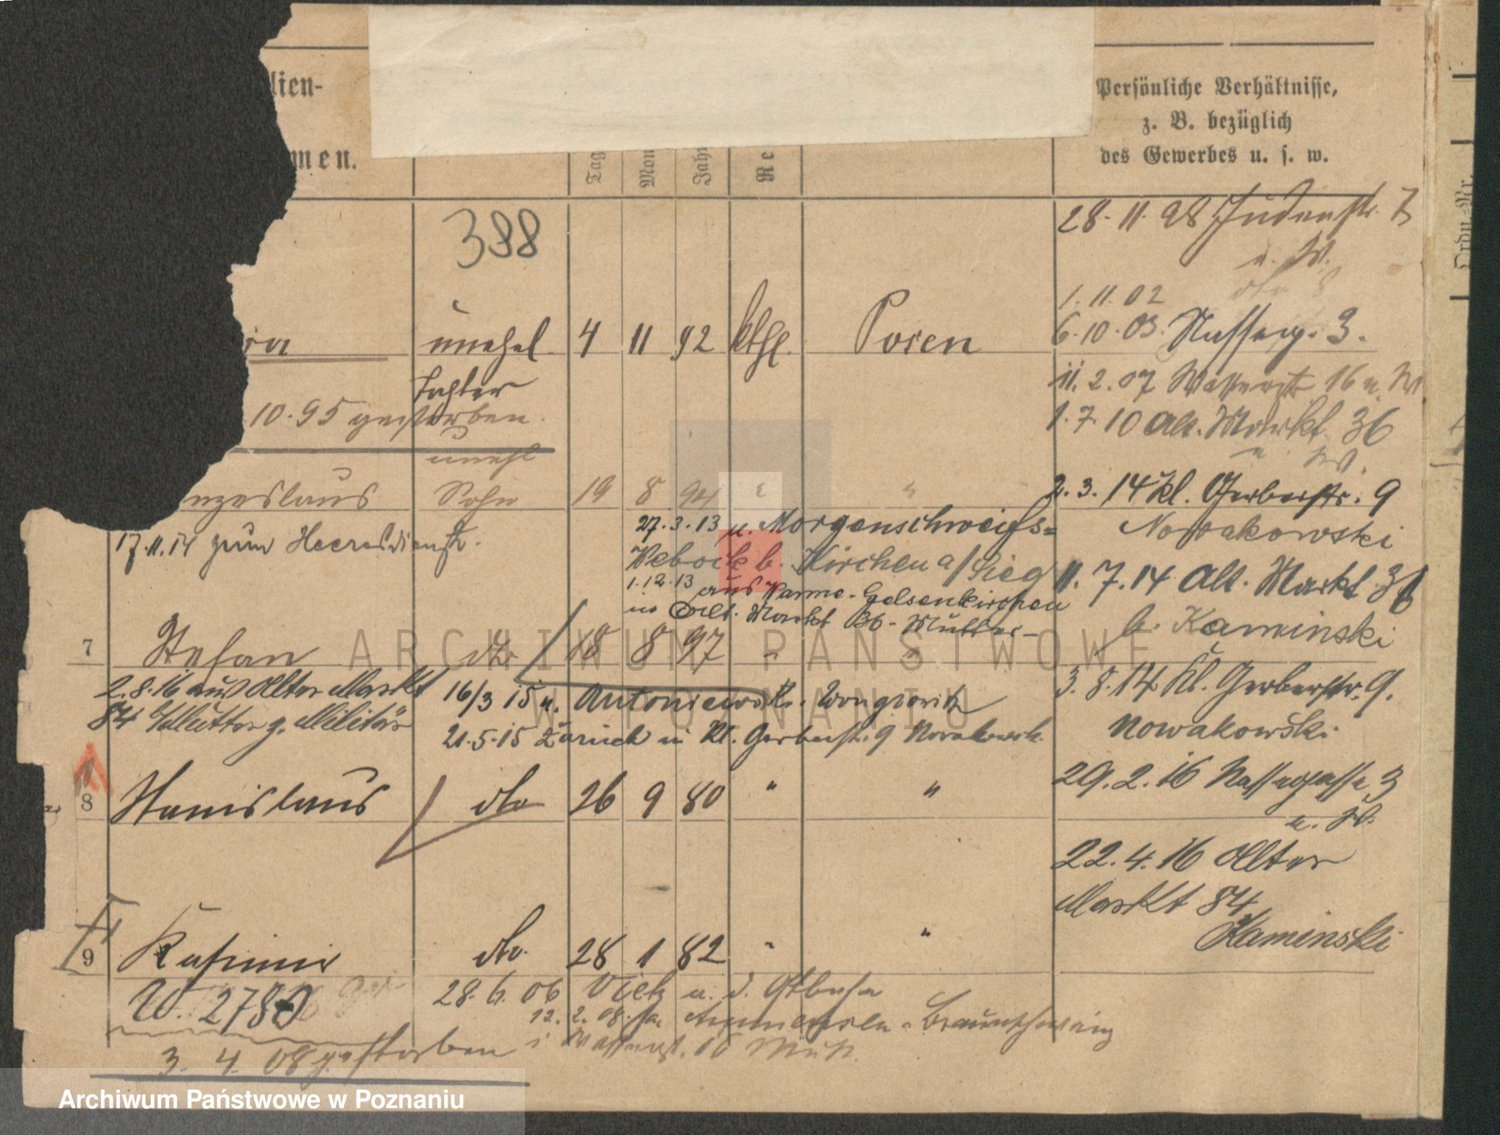 lien-
men.
Tag
Mon
Jahr
Re
Persönliche Verhältnisse,
z. B. bezüglich
des Gewerbes u. s. w.
Ordn.-Nr.
388
28. 11. 98 Judenstr. 7
u. W.
1. 11. 02
6. 10. 03. Nasseg. 3.
unehel. 4 11 92 kthl. Posen
Tochter
11. 2. 07 Wasserstr. 16 u. W.
10. 95 gestorben.
1. 7. 10 Alt. Markt 36
u. W.
unehl
nzeslaus Sohn 19 8 94 "
2. 3. 14 Kl. Gerberstr. 9
Nowakowski
17. 11. 14 zum Heeresdienst.
27. 3. 13 n. Morgenschweifs=
b. Kirchen a/Sieg
1. 12. 13 aus Wanne-Gelsenkirchen
in Alt. Markt 36 - Mutter -
11. 7. 14 Alt. Markt 36
b. Kaminski
7 Stefan dto 18 8 97 " "
2. 8. 16 aus Alter Markt
84 Mutter z. Militär
16/3 15 n. Antoniewo Kr. Wongrowitz
21. 5. 15 zurück in Kl. Gerberstr. 9 Nowakowsk.
3. 8. 14 Kl. Gerberstr. 9.
Nowakowski.
8 Stanislaus dto 26 9 80 " "
29. 2. 16 Nassegasse 3
u. W.
22. 4. 16 Alter
Markt 84
Kaminski
9 Kasimir dto. 28 1 82 " "
W. 2780
28. 6. 06 Vietz a. d. Ostbahn
12. 2. 08. - Braunschweig
i Wasserst. 16 Mutt.
3. 4. 08 gestorben
ARCHIWUM PAŃSTWOWE
W POZNANIU
Archiwum Państwowe w Poznaniu